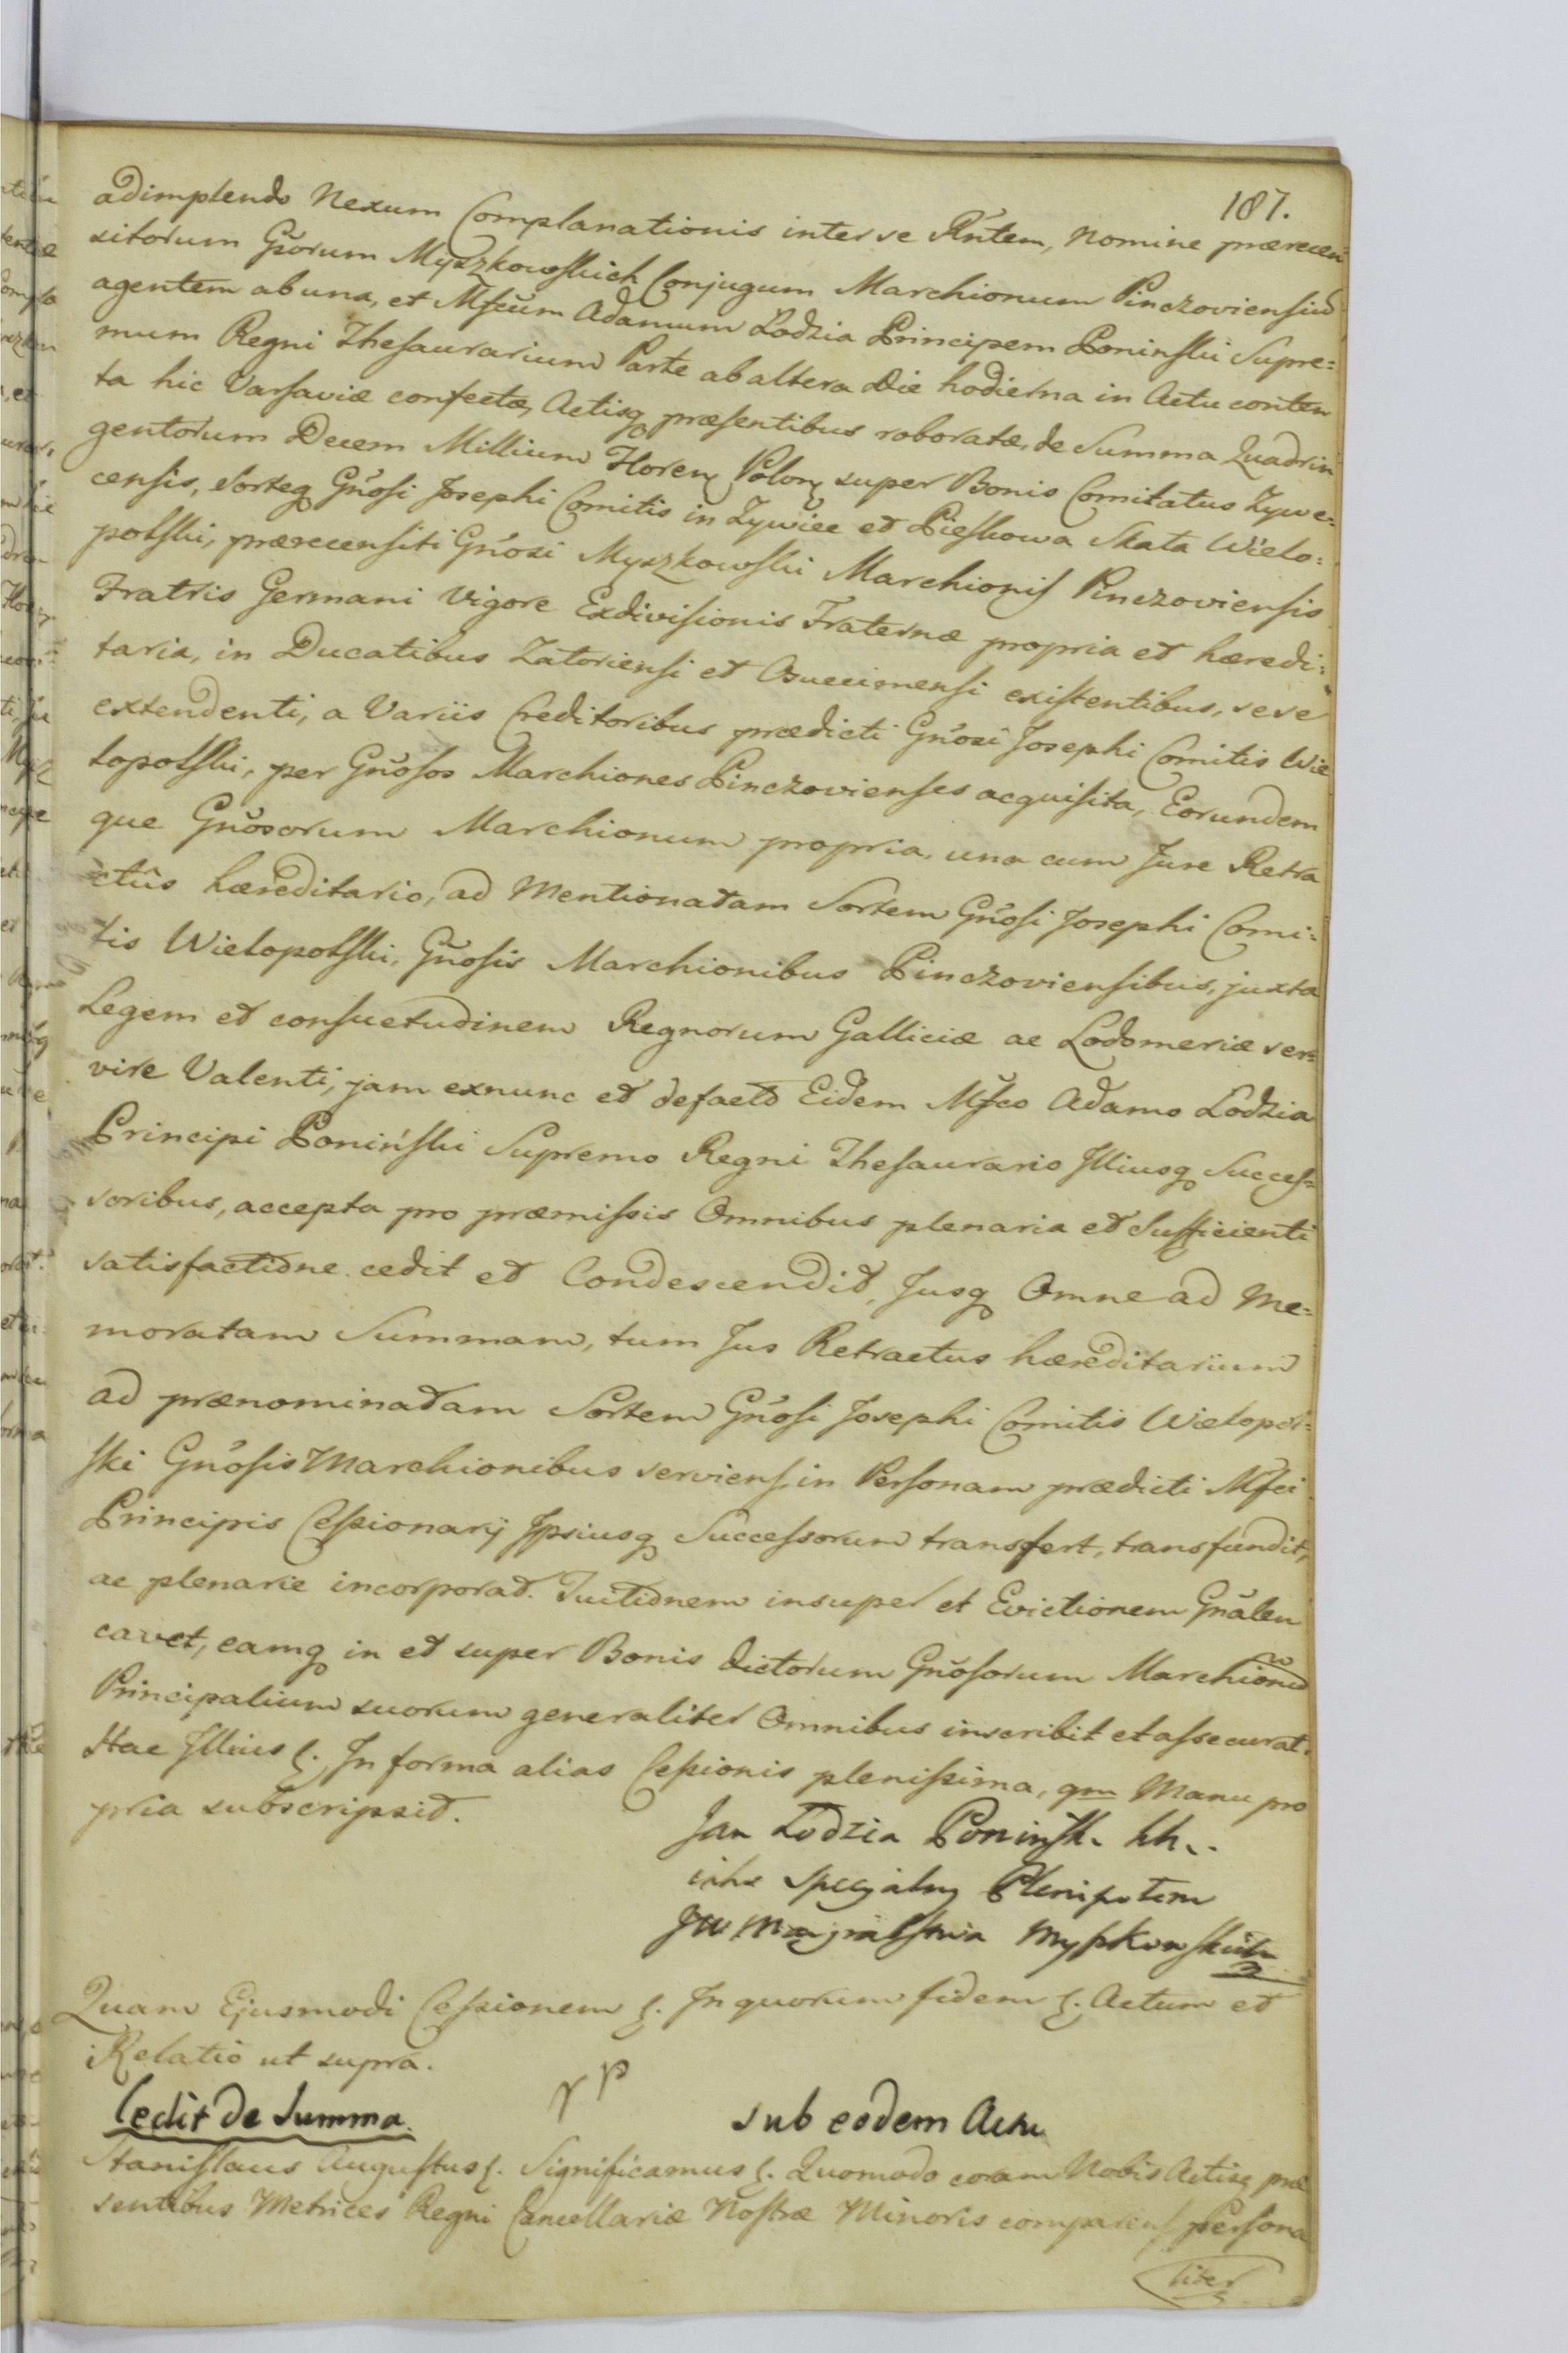 187.
adimplendo Nexum Complanationis inter se Rńtem, Nomine præreceń=
sitorum Gsorum Myszkowskich Conjugum Marchionum Pinczoviensiū
agentem ab una, et Mfcŭm Adamum Lodzia Principem Poninski Supre=
mum Regni Thesaurarium Parte ab altera Die hodierna in Actu conten
ta hic Varsaviæ confectæ, Actisq præsentibus roboratæ, de Summa Quadrin
gentorum Decem Millium Floren Polon super Bonis Comitatus Zywe=
censis, Sorteq Gnŏsi Josephi Comitis in Zywiec et Pieskowa Skała Wielo=
polski, prærecensiti Gnŏsi Myszkowski Marchionis Pinczoviensis
Fratris Germani Vigore Exdivisionis Fraternæ propria et hæredi=
taria, in Ducatibus Zatoriensi et Osuecimensi existentibus, sese
extendenti, a Variis Creditoribus prædicti Gnŏsi Josephi Comitis Wie
lopolski, per Gnŏsos Marchiones Pinczovienses acquisita, Eorundem
que Gnŏsorum Marchionum propria, una cum Jure Retra
ctûs hæreditario, ad Mentionatam Sortem Gnŏsi Josephi Comi=
tis Wielopolski, Gnŏsis Marchionibus Pinczoviensibus, juxta
Legem et consuetudinem Regnorum Galliciæ ac Lodomeriæ ser=
vire Valenti, jam exnunc et defacto Eidem Mfco Adamo Lodzia
Principi Poniński Supremo Regni Thesaurario Illiusq Succes=
soribus, accepta pro præmissis Omnibus plenaria et Sufficienti
satisfactione cedit et Condescendit, Jusq Omne ad Me=
moratam Summam, tum Jus Retractus hæreditarium
ad prænominatam Sortem Gnŏsi Josephi Comitis Wielopol=
ski Gnŏsis Marchionibus serviens, in Personam prædicti Mfci
Principis Cessionarij Ipsiusq Successorum transfert, transfundit,
ac plenarie incorporat. Tuitionem insuper et Evictionem Gnălen
cavet, eamq in et super Bonis dictorum Gnŏsorum Marchionū
Principalium suorum generaliter Omnibus inscribit et assecurat.
Hac Illius &. In forma alias Cessionis plenissima, qm Manu pro
pria subscripsit.
Jan Lodzia Poninsk
iako specyalny Plenipotent
JW Margrabstwa Myszkowskich
Quam Ejusmodi Cessionem &. In quorum fidem &. Actum et
Relatio ut supra.
Cedit de Summa. sub eodem Actu
Stanislaus Augustus &. Significamus &. Quomodo coram Nobis Actisq præ
sentibus Metrices Regni Cancellariæ Nostræ Minoris comparens persona
liter